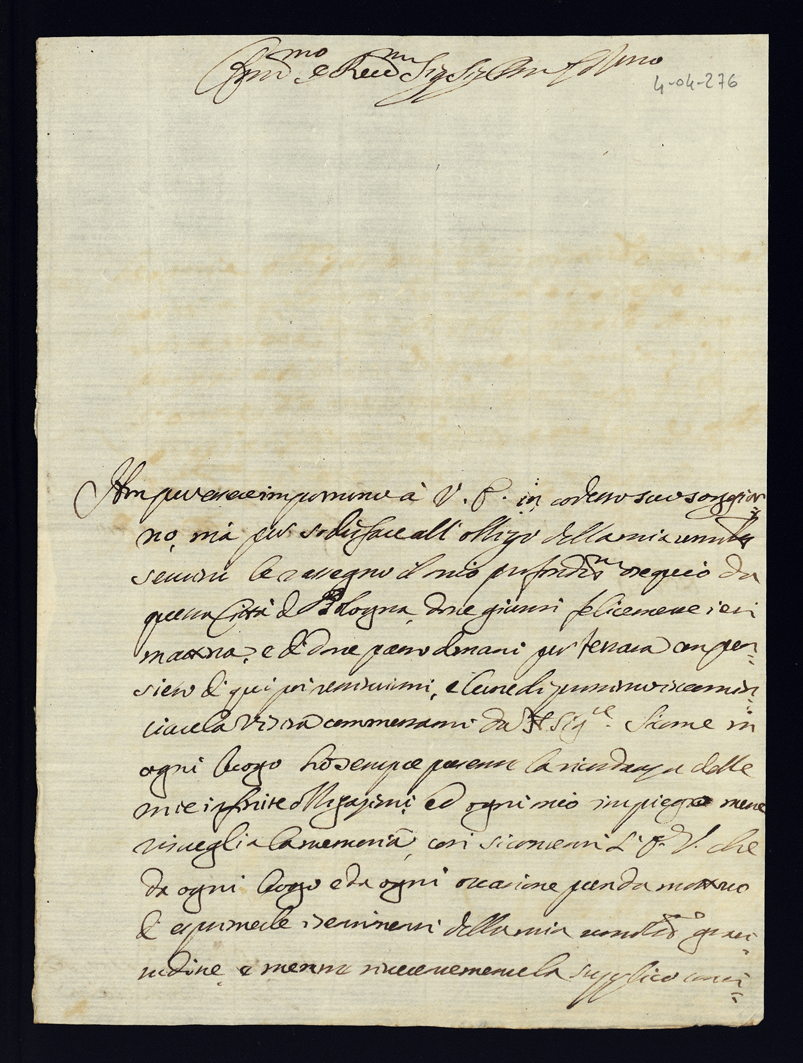 Em.mo e Reu.mo Sig. Sig. P.ron Col.mo
4-04-276
Non per essere importuno à V. E. in cotesto suo soggior=
no, mà per sodisfare all' obligo della mia
seruitù le rassegno il mio profondis.mo osequio da
questa Città di Bologna, doue giunsi felicemente ieri
mattina, e di doue parto dimani per Ferrara con pen=
siero di qui poi restituirmi, e Lunedì prossimo incomin=
ciare la Visita commessami da N. Sig.re. Sicome in
ogni luogo hò sempre presente la ricordanza delle
mie infinite obligazioni, ed ogni mio impiego mene
risueglia la memoria, così si contenti L' E. V. che
da ogni luogo e da ogni occasione prenda motiuo
di esprimerle i sentimenti della mia grati=
tudine, e mentre riuerentemente la supplico conti=